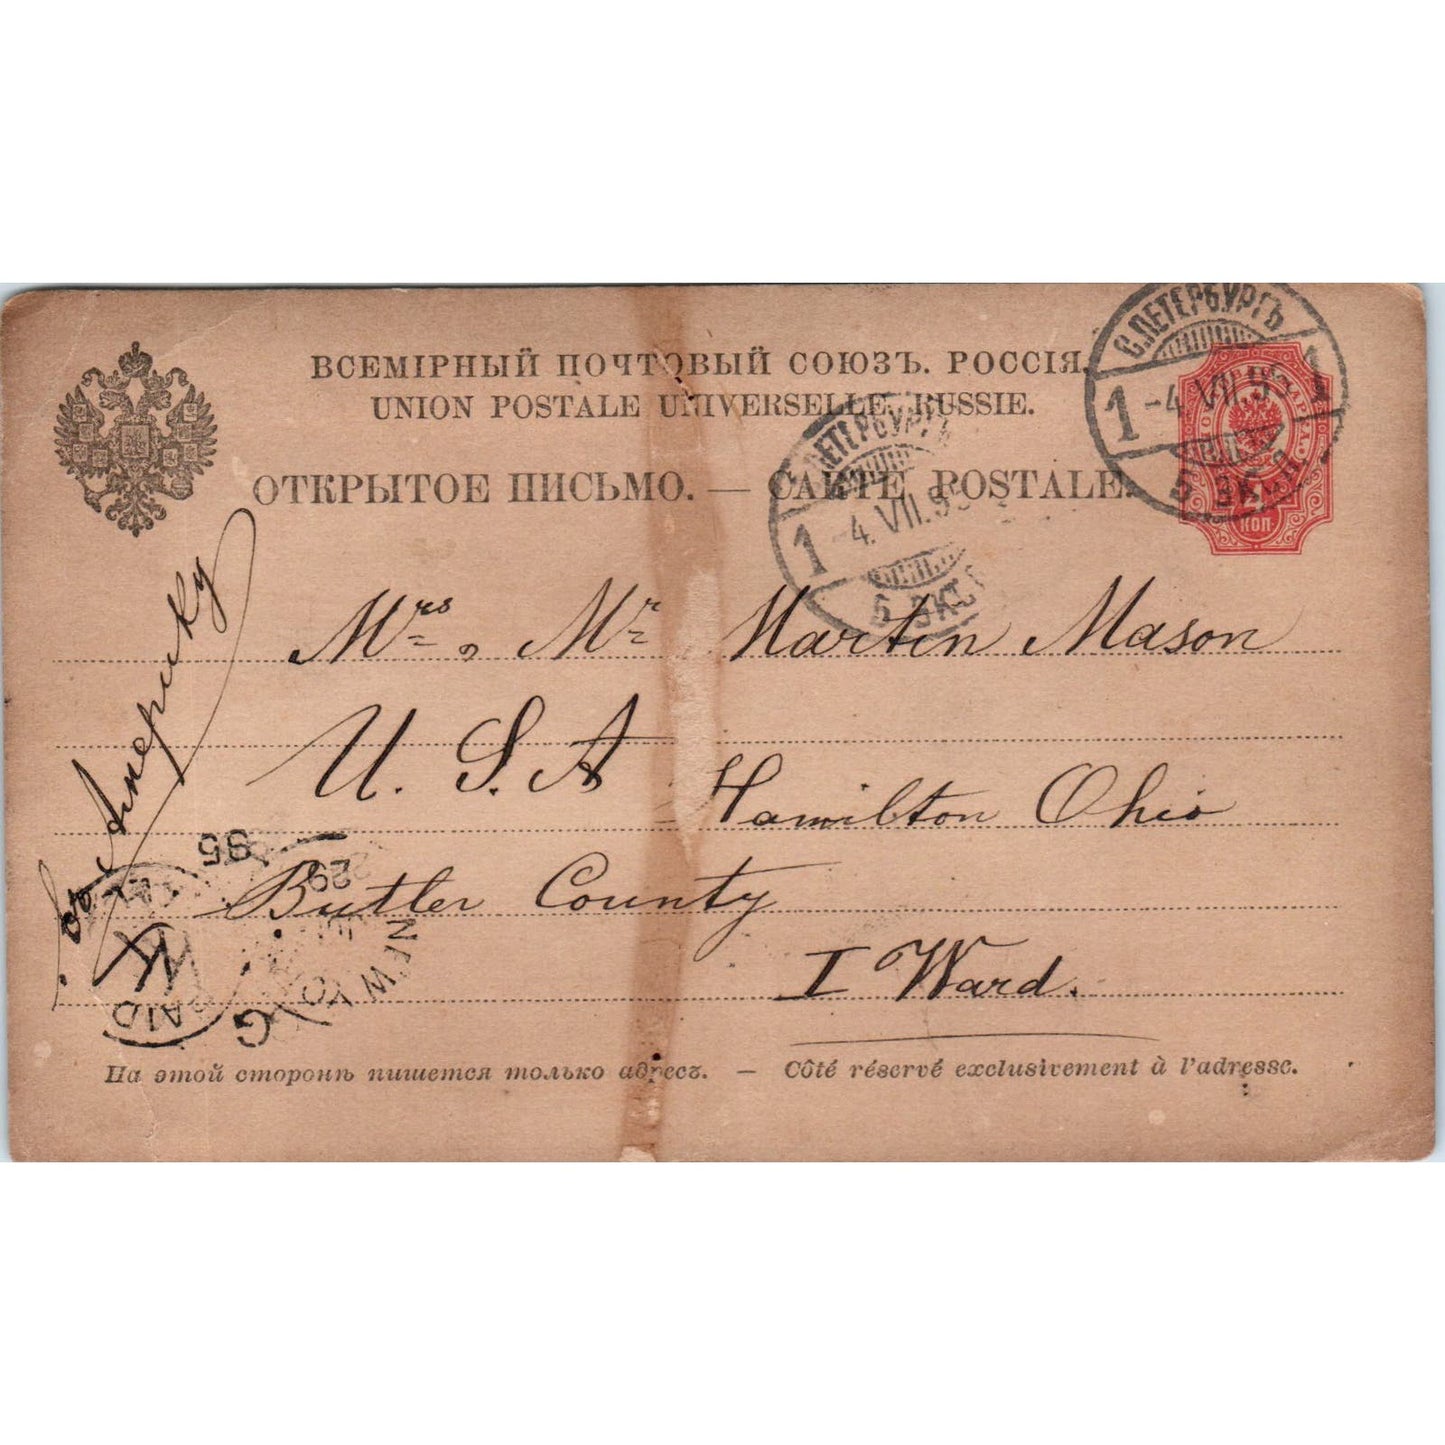 ВСЕМІРНЫЙ ПОЧТОВЫЙ СОЮЗЪ. РОССІЯ.
UNION POSTALE UNIVERSELLE. RUSSIE.
ОТКРЫТОЕ ПИСЬМО. — CARTE POSTALE.
С.ПЕТЕРБУРГЪ
1 -4.VII.95 1
5 ЭКСП.
КОП.
С.ПЕТЕРБУРГЪ
1 -4.VII.95
5 ЭКСП
въ Америку
Mrs, Mr Martin Mason
U.S.A
Hamilton Ohio
Butler County
I Ward.
NEW YO
G
29
95
PAID
На этой сторонѣ пишется только адресъ. — Côté réservé exclusivement à l'adresse.